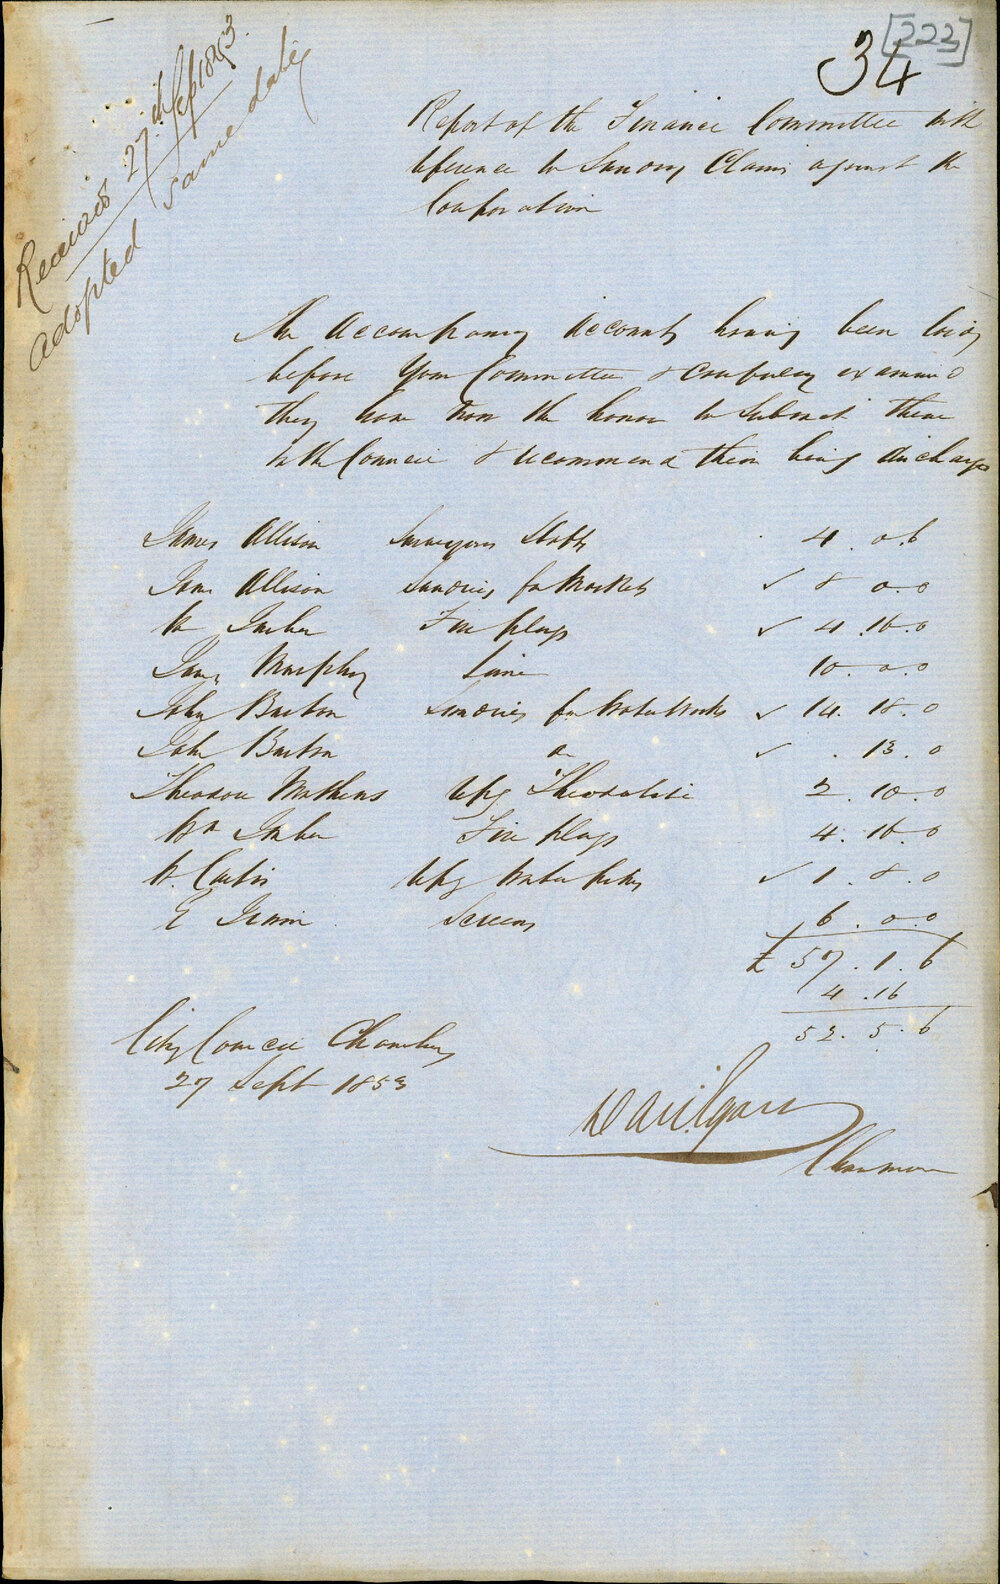 [223]
34
Received 27th Sept 1853.
Adopted same date
Report of the Finance Committee with
reference to Sundry Claims against the
Corporation
The Accompanying Accounts having been laid
before Your Committee & carefully examined
they have now the honor to Submit them
to the Council & recommend their being discharged
James Allison Surveyors Staffs 4 . 0 . 6
James Allison Sundries for Markets ✓ 8 0 . 0
Wm Fire plugs ✓ 4 . 16 . 0
James Murphy Lime 10 . 0 . 0
John Barton Sundries for Water Works ✓ 14 . 18 . 0
John Barton do ✓ . 13 . 0
Theodore Mathews Repg Theodolite 2 . 10 . 0
Wm Fire plugs 4 . 16 . 0
W. Curtis Repg Water ✓ 1 . 8 . 0
E Screens 6 . 0 . 0
£ 57 . 1 . 6
4 . 16
52 . 5 . 6
City Council Chambers
27 Sept 1853
Chairman